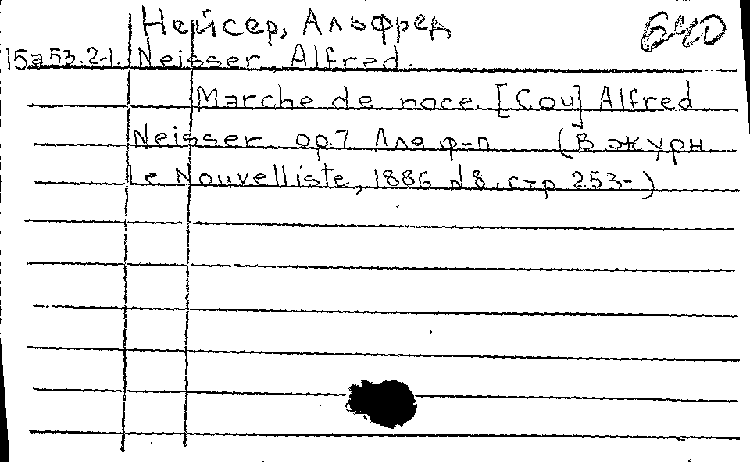 Нейсер, Альфред
640
15а53.2-1. Neisser, Alfred.
Marche de noce. [Соч] Alfred
Neisser op.7 Для ф-п (В журн.
Le Nouvelliste, 1886 №8, стр 253-)